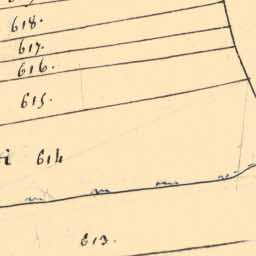 618.
617.
616.
615.
614
613.